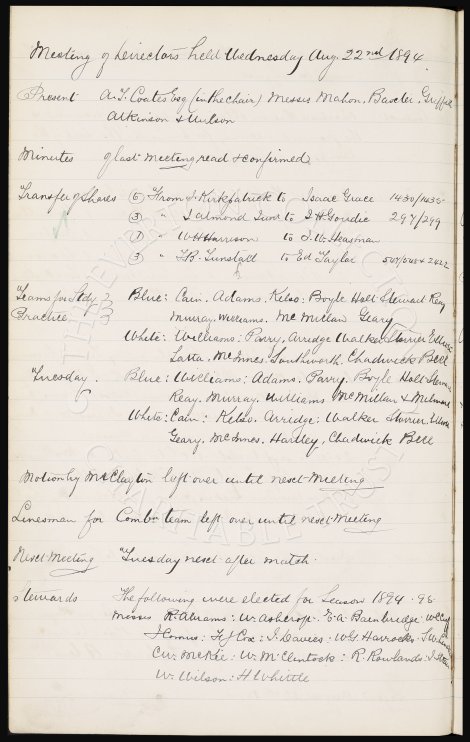 Meeting of Directors held Wednesday Aug. 22nd 1894.
Present A.T. Coates Esq (in the chair) Messrs Mahon, Baxter, Griffith
Atkinson & Wilson
Minutes of last meeting read & confirmed
Transfer of Shares (6) From J. Kirkpatrick to Isaac Grace 1430/1435
(3) " J Almond Junr to J.H. Goudie 297/299
(1) " W.H. Harrison to J.W. Heasman
(3) " F.B. Tunstall to Ed Taylor
Teams for Stdy Blue: Cain. Adams. Kelso: Boyle Holt Stewart Reay
Practice Murray. Williams. McMillan Geary
White: Williams: Parry, Arridge Walker Storrier Elliott
Latta. McInnes. Southworth. Chadwick Bell
Tuesday. Blue: Williams: Adams. Parry. Boyle Holt Stewart
Reay. Murray. Williams McMillan & Milward
White: Cain: Kelso. Arridge: Walker Storrier, Elliott
Geary, McInnes. Hartley, Chadwick Bell
Motion by Mr Clayton left over until next Meeting
Linesman for Combn team left over until next Meeting
Next Meeting Tuesday next after match.
Stewards The following were elected for Season 1894-95
Messrs R. Abrams: W. Ashcroft. E.A. Bainbridge.
Cox: J. Davies. W.G. Harrocks.
C.W. McKee: W. McClintock: R. Rowlands:
W. Wilson: H Whittle
THE EVERTON
CHARITABLE TRUST